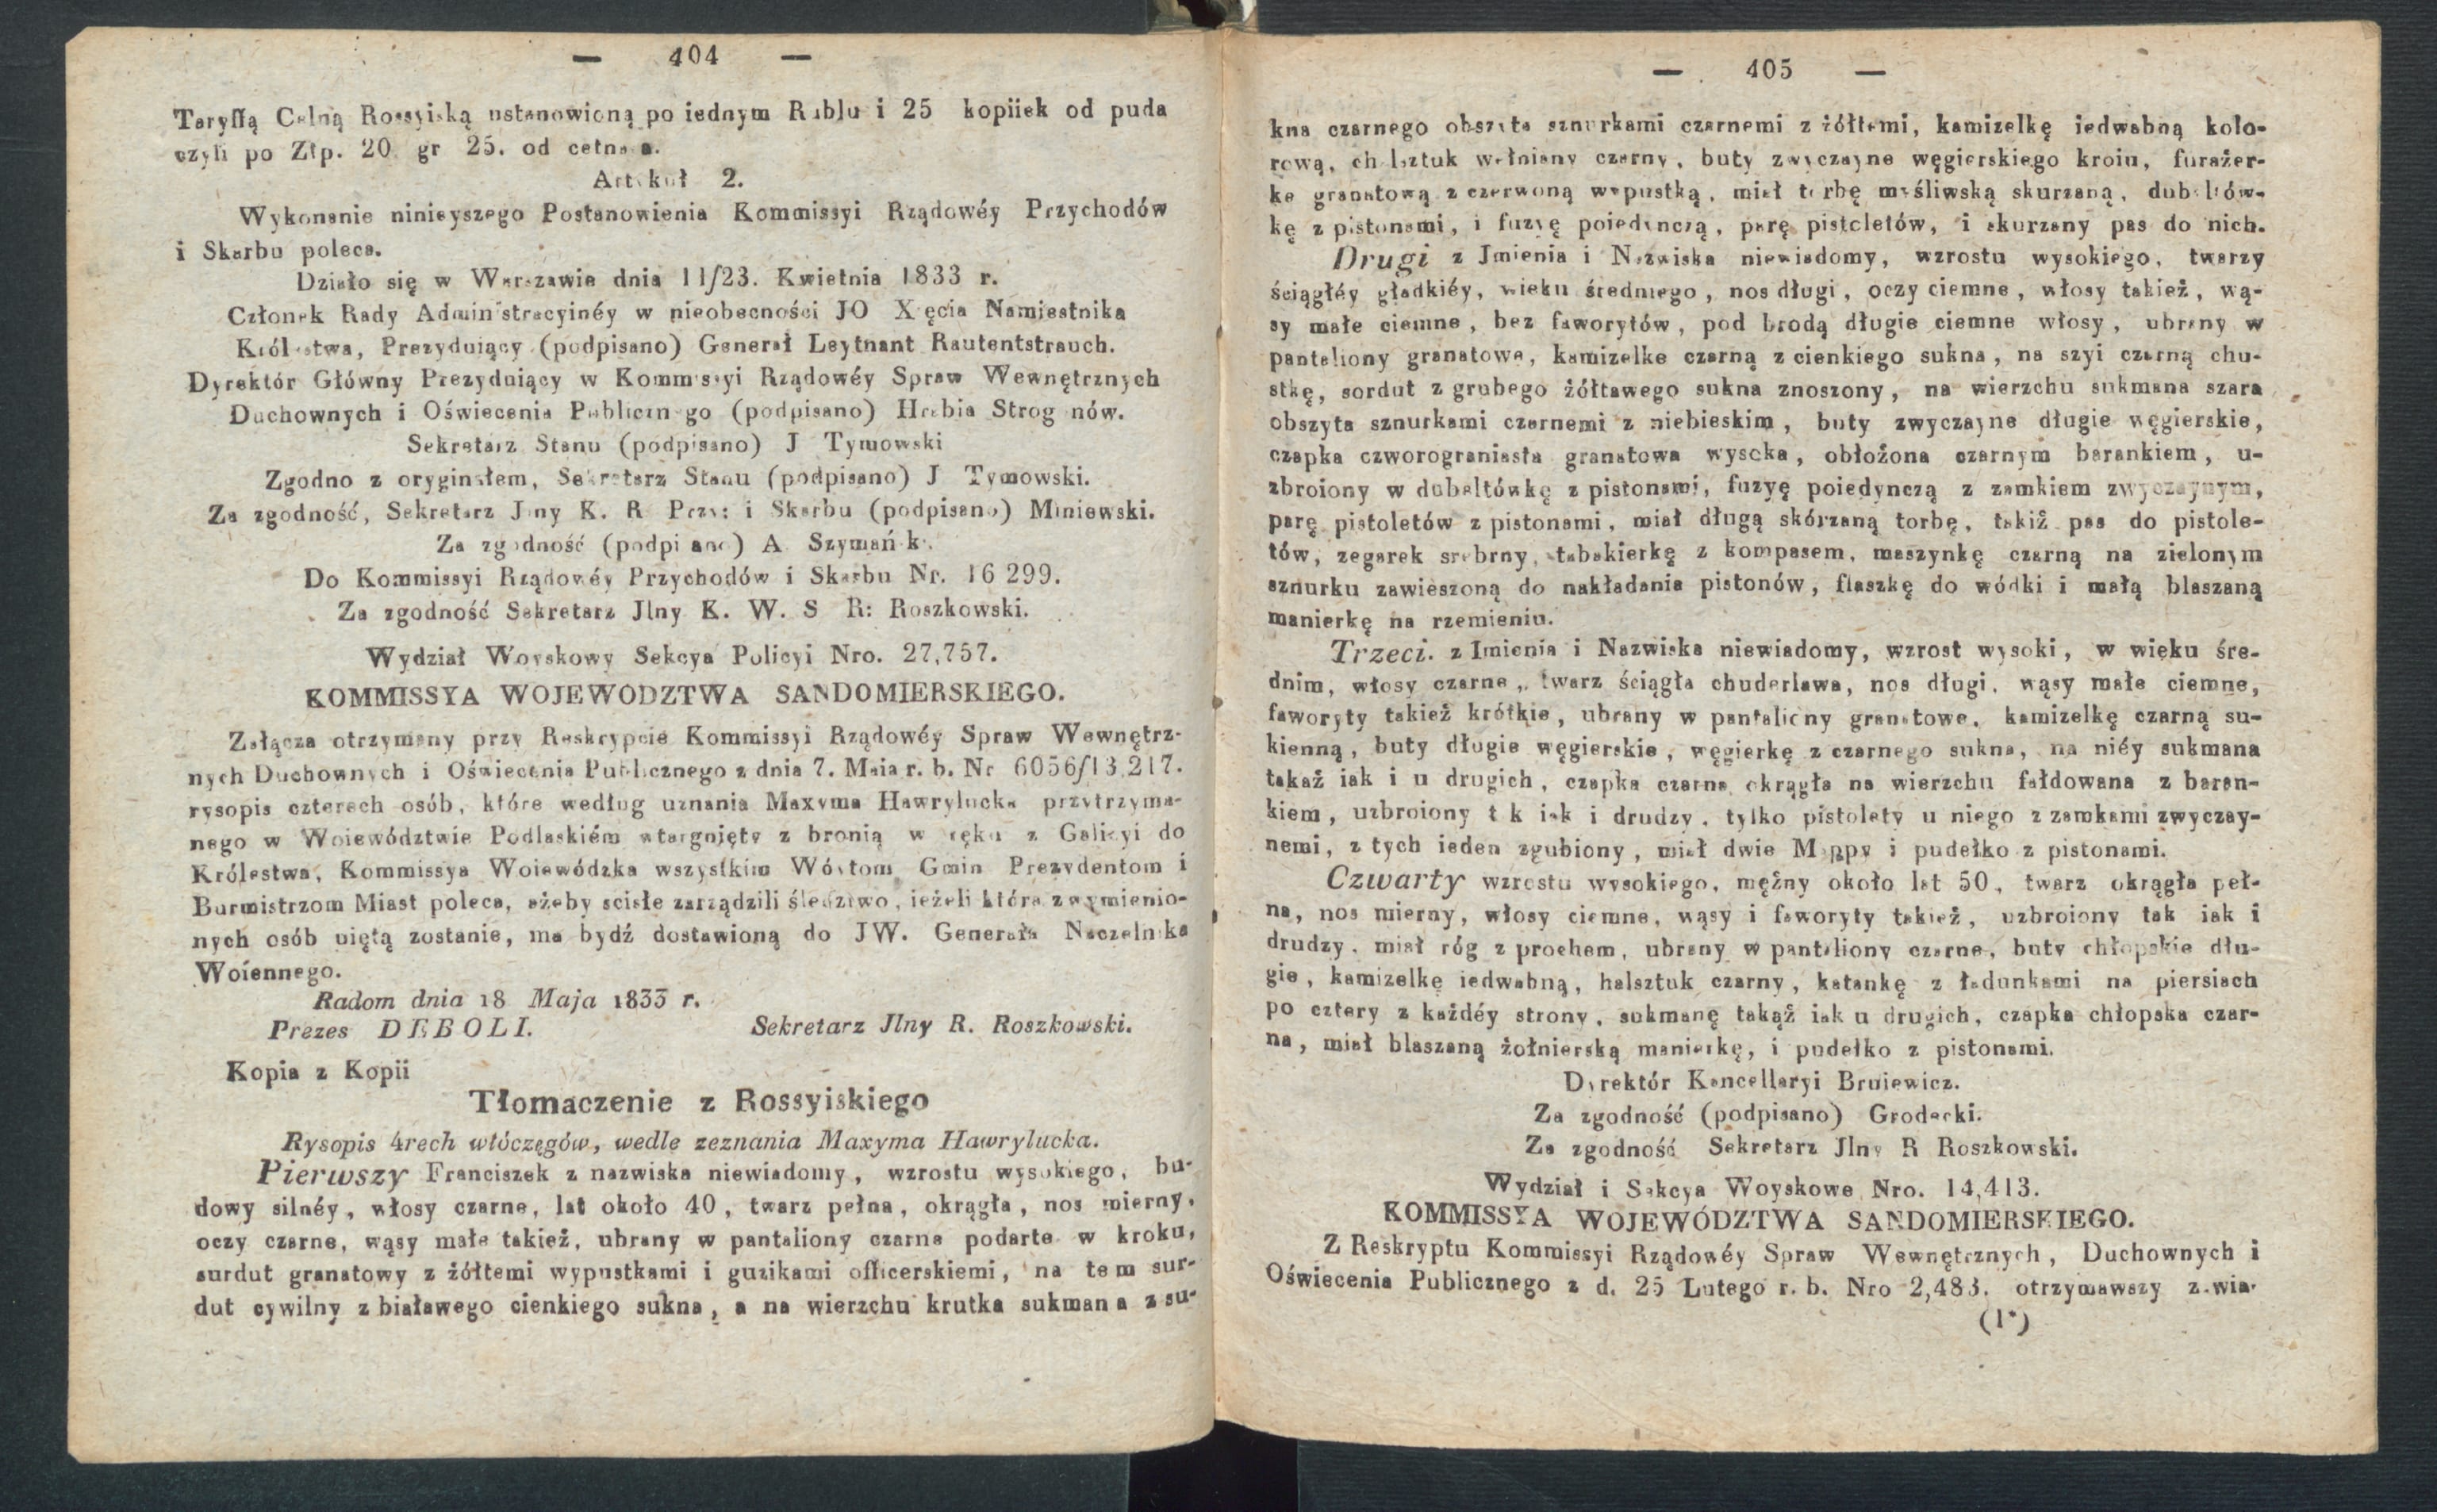 — 404 —
Taryffą Celną Rossyiską ustanowioną po iednym Rublu i 25 kopiiek od puda
czyli po Złp. 20 gr 25. od cetnara.
Artykuł 2.
Wykonanie ninieyszego Postanowienia Kommissyi Rządowéy Przychodów
i Skarbu poleca.
Działo się w Warszawie dnia 11/23. Kwietnia 1833 r.
Członek Rady Administracyinéy w nieobecności JO Xęcia Namiestnika
Królestwa, Prezyduiący (podpisano) Generał Leytnant Rautentstrauch.
Dyrektór Główny Prezyduiący w Kommissyi Rządowéy Spraw Wewnętrznych
Duchownych i Oświecenia Publicznego (podpisano) Hrabia Strogonów.
Sekretarz Stanu (podpisano) J Tymowski
Zgodno z oryginałem, Sekretarz Stanu (podpisano) J Tymowski.
Za zgodność, Sekretarz Jlny K. R Przy: i Skarbu (podpisano) Miniewski.
Za zgodność (podpisano) A Szymański.
Do Kommissyi Rządowéy Przychodów i Skarbu Nr. 16 299.
Za zgodność Sekretarz Jlny K. W. S R: Roszkowski.
Wydział Woyskowy Sekcya Policyi Nro. 27,757.
KOMMISSYA WOJEWODZTWA SANDOMIERSKIEGO.
Załącza otrzymany przy Reskrypcie Kommissyi Rządowéy Spraw Wewnętrz-
nych Duchownych i Oświecenia Publicznego z dnia 7. Maia r. b. Nr 6056/13,217.
rysopis czterech osób, które według uznania Maxyma Hawrylucka przytrzyma-
nego w Woiewództwie Podlaskiém wtargnięty z bronią w ręku z Galicyi do
Królestwa, Kommissya Woiewódzka wszystkim Wóytom Gmin Prezydentom i
Burmistrzom Miast poleca, ażeby scisłe zarządzili śledztwo, ieżeli która z wymienio-
nych osób uiętą zostanie, ma bydź dostawioną do JW. Generała Naczelnika
Woiennego.
Radom dnia 18 Maja 1833 r.
Prezes DEBOLI. Sekretarz Jlny R. Roszkowski.
Kopia z Kopii
Tłomaczenie z Rossyiskiego
Rysopis 4rech włóczęgów, wedle zeznania Maxyma Hawrylucka.
Pierwszy Franciszek z nazwiska niewiadomy, wzrostu wysokiego, bu-
dowy silnéy, włosy czarne, lat około 40, twarz pełna, okrągła, nos mierny,
oczy czarne, wąsy małe takież, ubrany w pantaliony czarne podarte w kroku,
surdut granatowy z żółtemi wypustkami i guzikami officerskiemi, na tem sur-
dut cywilny z białawego cienkiego sukna, a na wierzchu krutka sukmana z su-
— 405 —
kna czarnego obszyta sznurkami czarnemi z żółtemi, kamizelkę iedwabną kolo-
rową, chalsztuk wełniany czarny, buty zwyczayne węgierskiego kroiu, furażer-
ke granatową z czerwoną wypustką, miał torbę myśliwską skurzaną, dubeltów-
kę z pistonami, i fuzyę poiedynczą, parę pistoletów, i skurzany pas do nich.
Drugi z Jmienia i Nazwiska niewiadomy, wzrostu wysokiego, twarzy
ściągłéy gładkiéy, wieku średniego, nos długi, oczy ciemne, włosy takież, wą-
sy małe ciemne, bez faworytów, pod brodą długie ciemne włosy, ubrany w
pantaliony granatowe, kamizelke czarną z cienkiego sukna, na szyi czarną chu-
stkę, sordut z grubego żółtawego sukna znoszony, na wierzchu sukmana szara
obszyta sznurkami czarnemi z niebieskim, buty zwyczayne długie węgierskie,
czapka czworograniasta granatowa wysoka, obłożona czarnym barankiem, u-
zbroiony w dubeltówkę z pistonami, fuzyę poiedynczą z zamkiem zwyczaynym,
parę pistoletów z pistonami, miał długą skórzaną torbę, takiż pas do pistole-
tów, zegarek srebrny, tabakierkę z kompasem, maszynkę czarną na zielonym
sznurku zawieszoną do nakładania pistonów, flaszkę do wódki i małą blaszaną
manierkę na rzemieniu.
Trzeci. z Imienia i Nazwiska niewiadomy, wzrost wysoki, w wieku śre-
dnim, włosy czarne, twarz ściągła chuderlawa, nos długi, wąsy małe ciemne,
faworyty takież krótkie, ubrany w pantaliony granatowe, kamizelkę czarną su-
kienną, buty długie węgierskie, węgierkę z czarnego sukna, na niéy sukmana
takaż iak i u drugich, czapka czarna okrągła na wierzchu fałdowana z baran-
kiem, uzbroiony tak iak i drudzy, tylko pistolety u niego z zamkami zwyczay-
nemi, z tych ieden zgubiony, miał dwie Mappy i pudełko z pistonami.
Czwarty wzrostu wysokiego, mężny około lat 50, twarz okrągła peł-
na, nos mierny, włosy ciemne, wąsy i faworyty takież, uzbroiony tak iak i
drudzy, miał róg z prochem, ubrany w pantaliony czarne, buty chłopskie dłu-
gie, kamizelkę iedwabną, halsztuk czarny, katankę z ładunkami na piersiach
po cztery z każdéy strony, sukmanę takąż iak u drugich, czapka chłopska czar-
na, miał blaszaną żołnierską manierkę, i pudełko z pistonami.
Dyrektór Kancellaryi Bruiewicz.
Za zgodność (podpisano) Grodecki.
Za zgodność Sekretarz Jlny R Roszkowski.
Wydział i Sekcya Woyskowe Nro. 14,413.
KOMMISSYA WOJEWÓDZTWA SANDOMIERSKIEGO.
Z Reskryptu Kommissyi Rządowéy Spraw Wewnętrznych, Duchownych i
Oświecenia Publicznego z d. 25 Lutego r. b. Nro 2,483. otrzymawszy zawia-
(1*)